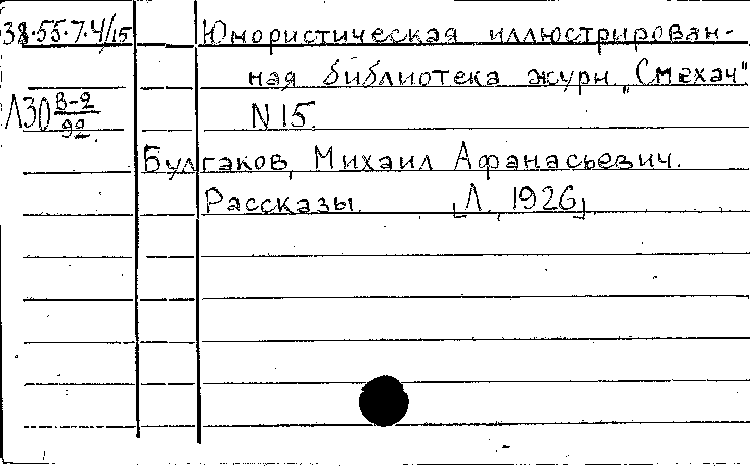 38.55.7.4/15 Юмористическая иллюстрирован-
ная библиотека журн. „Смехач"
Л30 В-2/92 N 15.
Булгаков, Михаил Афанасьевич.
Рассказы. [Л., 1926]